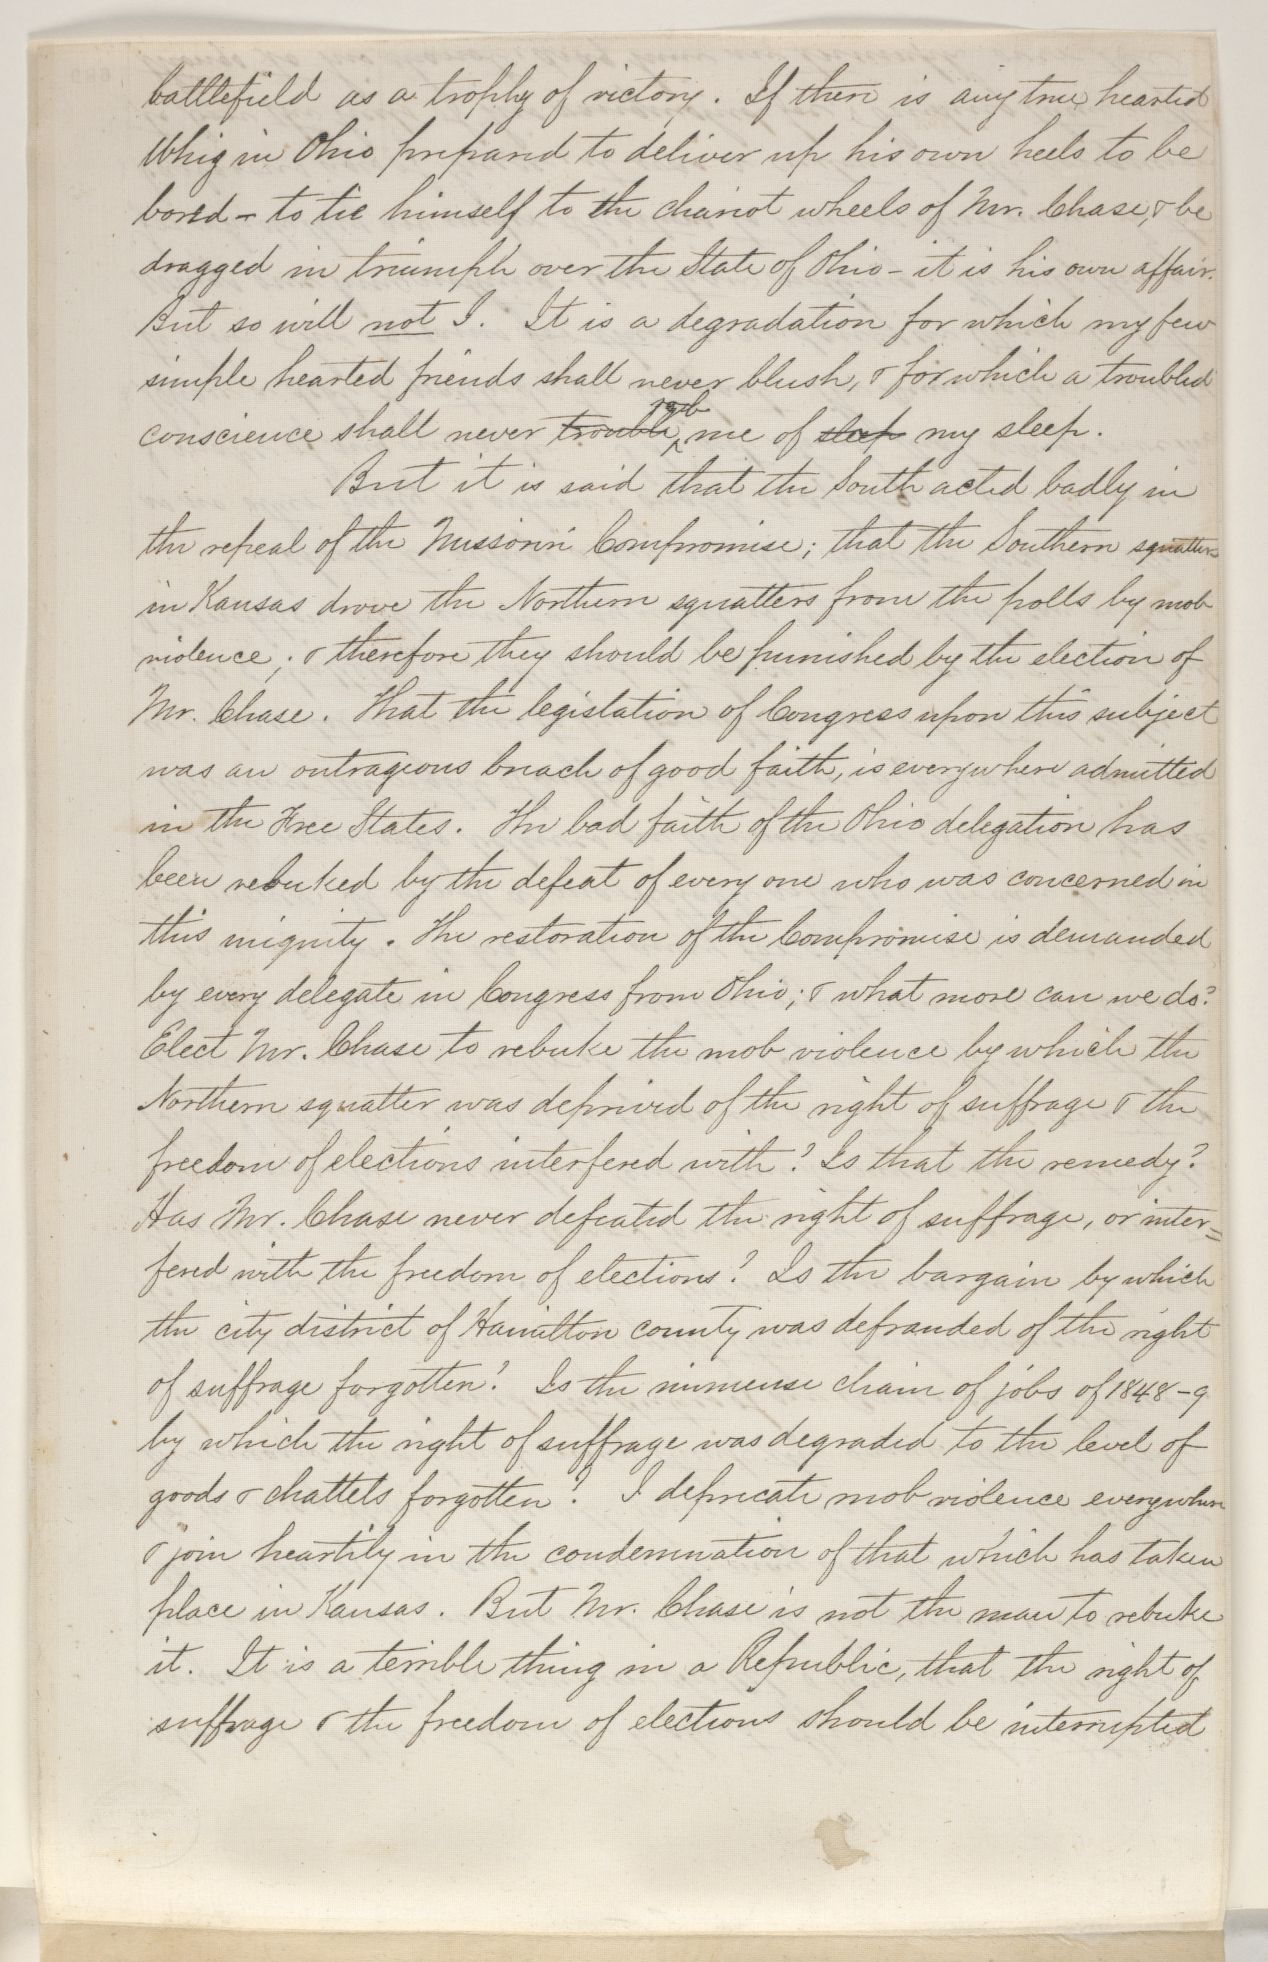 battlefield as a trophy of victory. If there is any true hearted
Whig in Ohio prepared to deliver up his own heels to be
bored - to tie himself to the chariot wheels of Mr. Chase, & be
dragged in triumph over the State of Ohio - it is his own affair.
But so will not I. It is a degradation for which my few
simple hearted friends shall never blush, & for which a troubled
conscience shall never trouble rob me of sleep my sleep.
But it is said that the South acted badly in
the repeal of the Missouri Compromise; that the Southern squatters
in Kansas drove the Northern squatters from the polls by mob
violence; & therefore they should be punished by the election of
Mr. Chase. That the legislation of Congress upon this subject
was an outrageous breach of good faith, is everywhere admitted
in the Free States. The bad faith of the Ohio delegation has
been rebuked by the defeat of every one who was concerned in
this iniquity. The restoration of the Compromise is demanded
by every delegate in Congress from Ohio; & what more can we do?
Elect Mr. Chase to rebuke the mob violence by which the
Northern squatter was deprived of the right of suffrage & the
freedom of elections interfered with? Is that the remedy?
Has Mr. Chase never defeated the right of suffrage, or inter=
fered with the freedom of elections? Is the bargain by which
the city district of Hamilton county was defrauded of the right
of suffrage forgotten? Is the immense chain of jobs of 1848-9
by which the right of suffrage was degraded to the level of
goods & chattels forgotten? I deprecate mob violence everywhere
& join heartily in the condemnation of that which has taken
place in Kansas. But Mr. Chase is not the man to rebuke
it. It is a terrible thing in a Republic, that the right of
suffrage & the freedom of elections should be interrupted